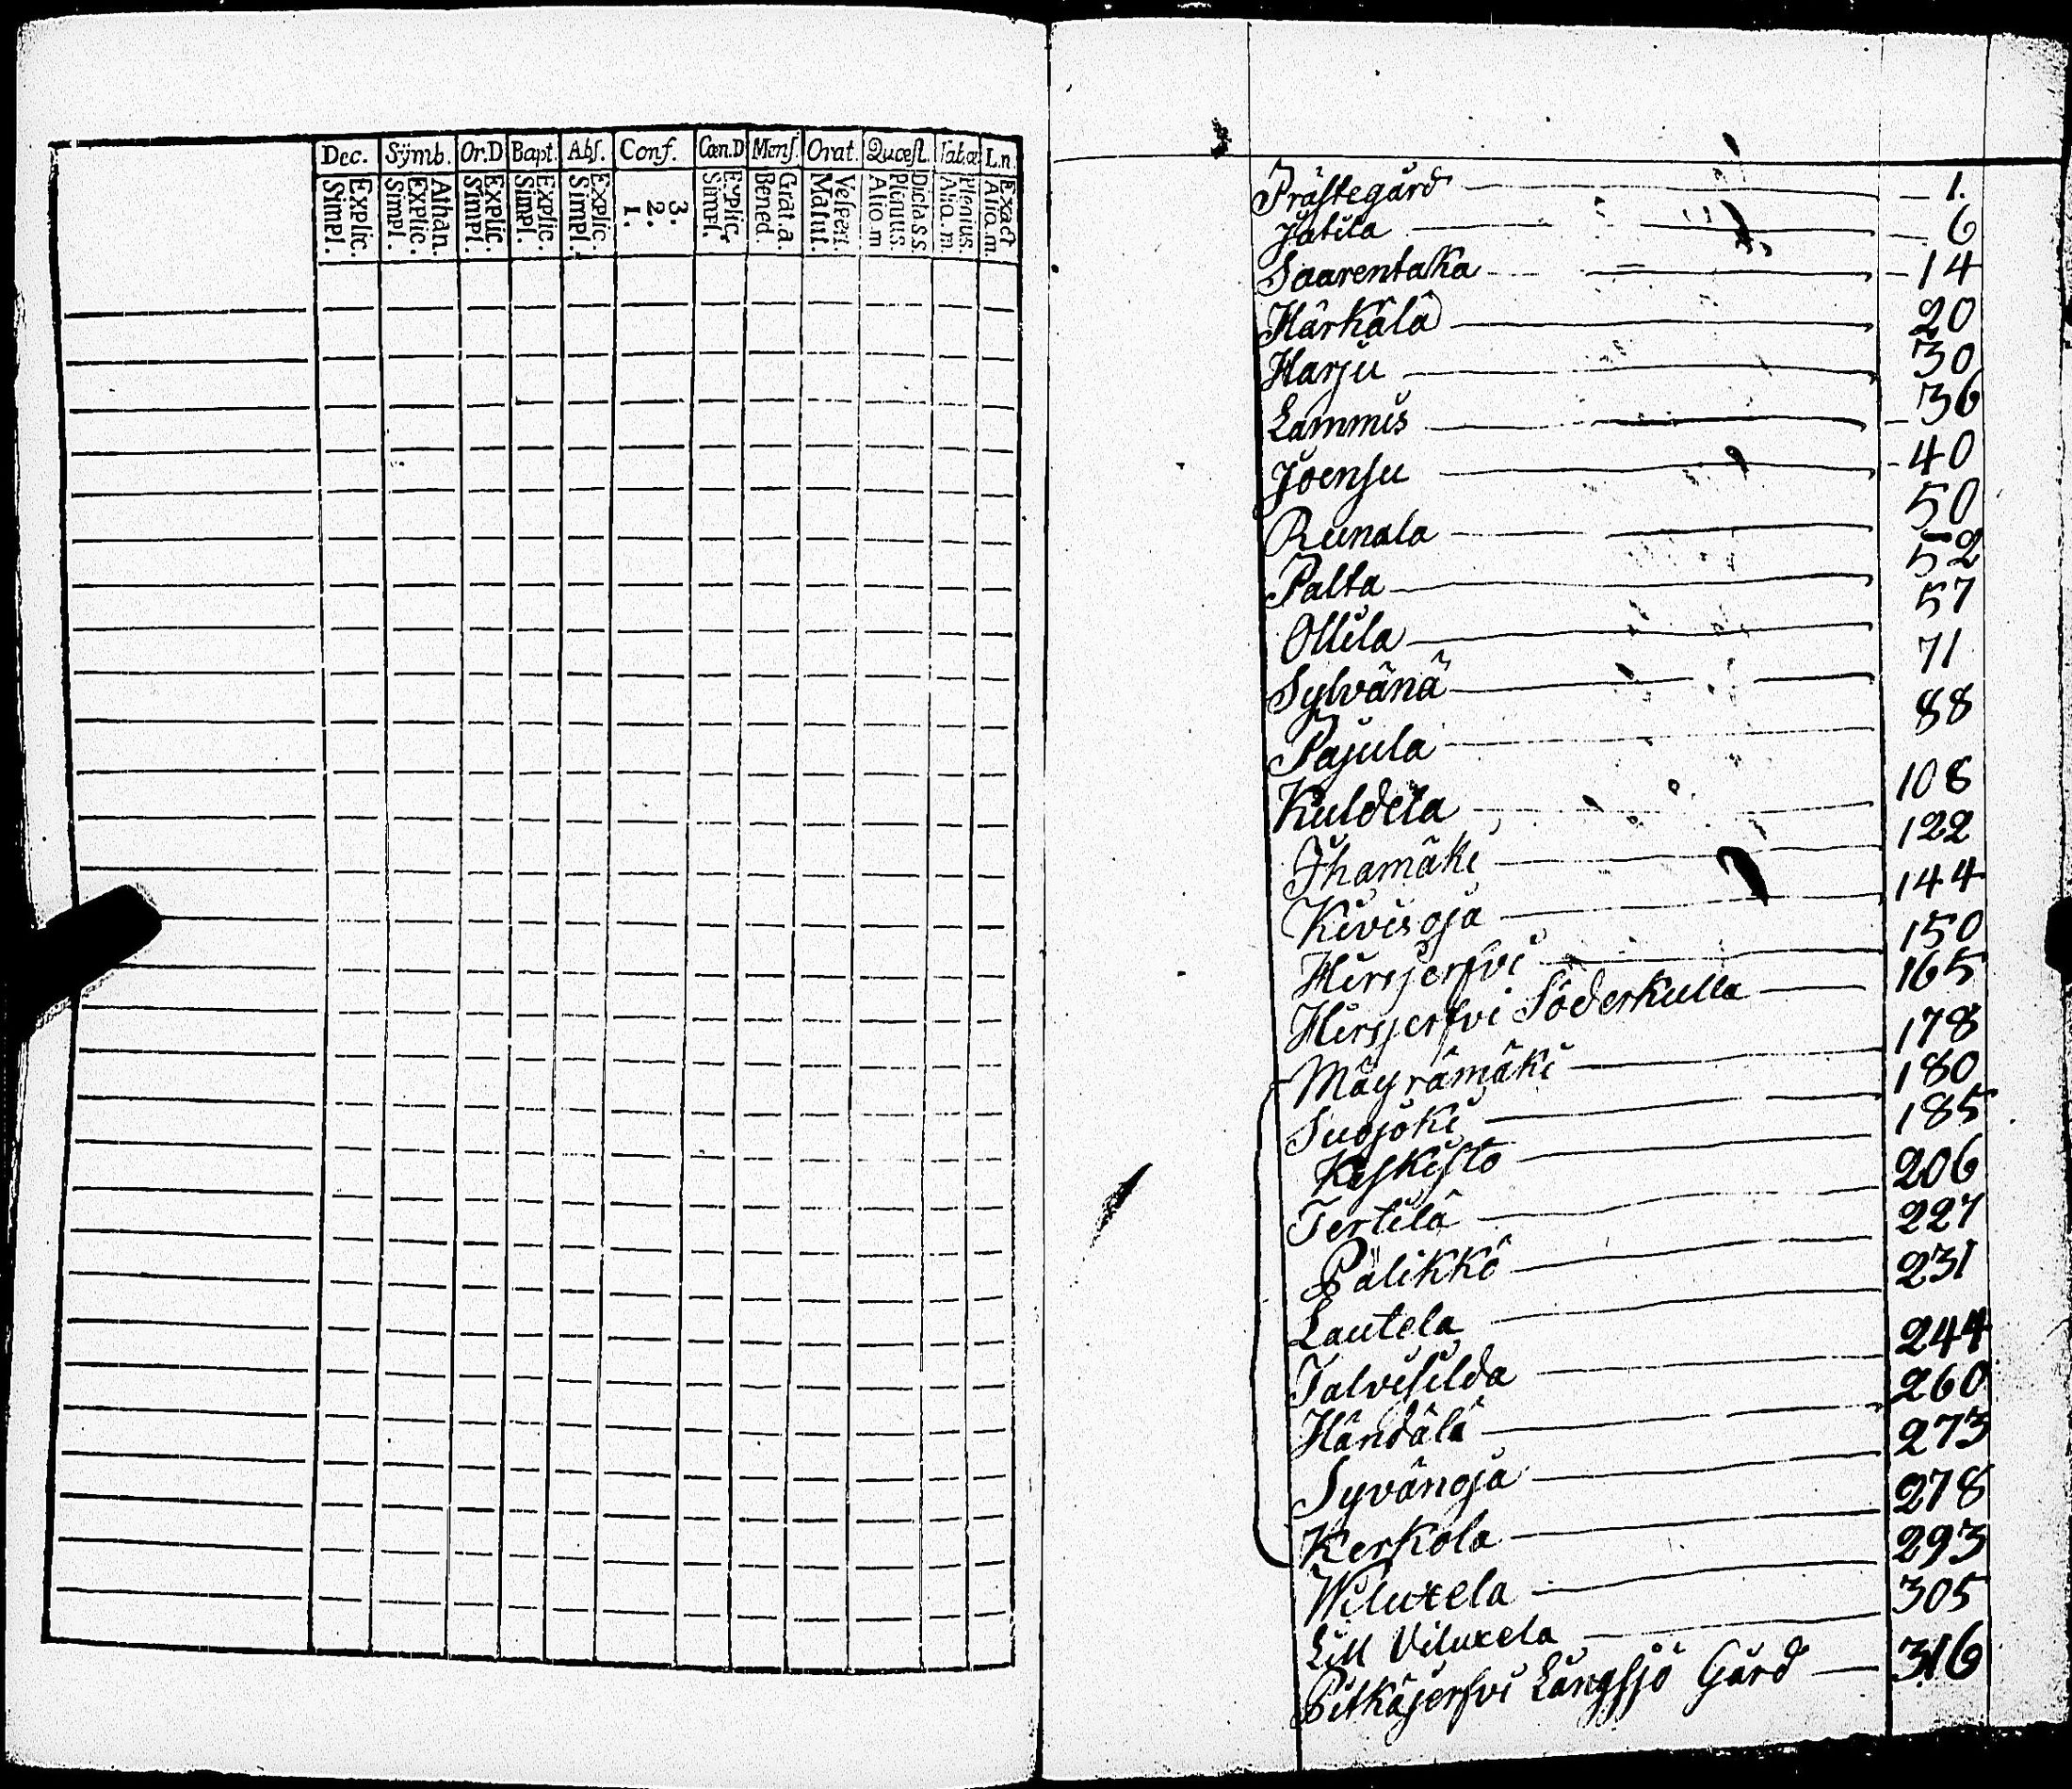 Dec. Sÿmb. Or.D Bapt. Abſ. Conf. Cœn.D Menſ. Orat. Quæſt. Tab.œ L.n.
Explic. Simpl. Athan. Explic. Simpl. Explic. Simpl. Explic. Simpl. Explic. Simpl. 3. 2. 1. Explic. Simpl. Grat.a. Bened. Veſpert. Matut. Dicta s.s. Plenius. Alio.m Plenius. Alio.m. Exact Alio.m.
Präſtegård 1.
Jatila 6
Saarentaka 14
Härkälä 20
Harju 30
Lammis 36
Joenſu 40
Runala 50
Palta 52
Ollila 57
Sylvänä 71
Pajula 88
Kuldela 108
Ihamäki 122
Kivisoja 144
Hirsjerfvi 150
Hirsjerfvi Söderkulla 165
Mäyrämäki 178
Suojoki 180
Keſkiſto 185
Tertilä 206
Palikkö 227
Lautela 231
Talviſilda 244
Händälä 260
Syvänoja 273
Kerkola 278
Wiluxela 293
Lill Viluxela 305
Pitkäjerfvi Långſjö Gård 316